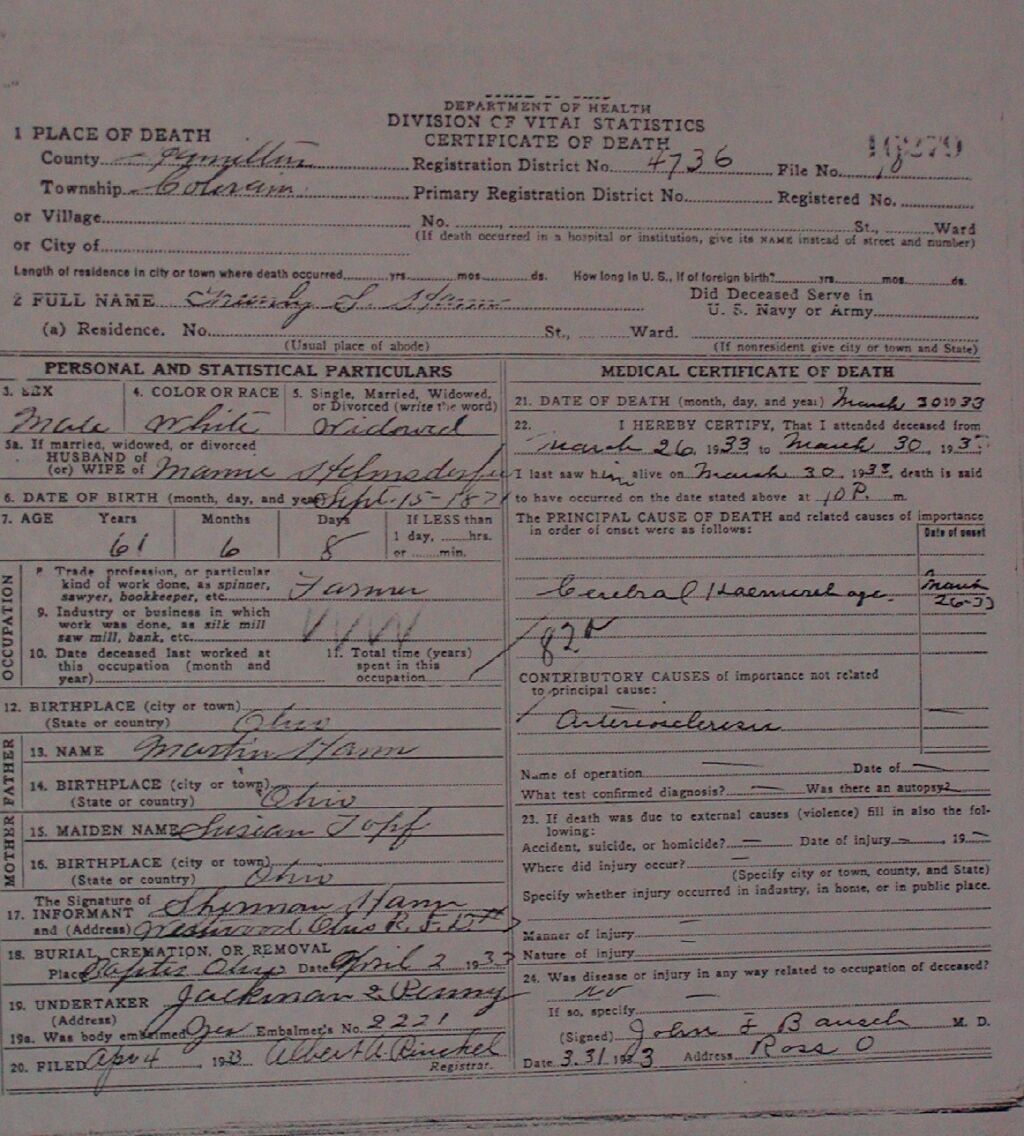 DEPARTMENT OF HEALTH
DIVISION OF VITAL STATISTICS
CERTIFICATE OF DEATH
1 PLACE OF DEATH
County Hamilton Registration District No. 4736 File No.
Township Colerain Primary Registration District No. Registered No.
or Village No. St., Ward
(If death occurred in a hospital or institution, give its NAME instead of street and number)
or City of
Length of residence in city or town where death occurred yrs. mos. ds. How long in U. S., if of foreign birth? yrs. mos. ds.
2 FULL NAME Hann Did Deceased Serve in
U. S. Navy or Army
(a) Residence. No. St., Ward.
(Usual place of abode) (If nonresident give city or town and State)
PERSONAL AND STATISTICAL PARTICULARS
3. SEX 4. COLOR OR RACE 5. Single, Married, Widowed,
or Divorced (write the word)
Male White Widowed
5a. If married, widowed, or divorced
HUSBAND of
(or) WIFE of Mamie
6. DATE OF BIRTH (month, day, and year) Sept-15-1871
7. AGE Years Months Days If LESS than
1 day, hrs.
61 6 8 or min.
OCCUPATION
8. Trade profession, or particular
kind of work done, as spinner,
sawyer, bookkeeper, etc. Farmer
9. Industry or business in which
work was done, as silk mill
saw mill, bank, etc.
10. Date deceased last worked at
this occupation (month and
year)
11. Total time (years)
spent in this
occupation
12. BIRTHPLACE (city or town)
(State or country) Ohio
FATHER
13. NAME Martin Hann
14. BIRTHPLACE (city or town)
(State or country) Ohio
MOTHER
15. MAIDEN NAME Susian Topf
16. BIRTHPLACE (city or town)
(State or country) Ohio
The Signature of
17. INFORMANT Sherman Hann
and (Address) Westwood Ohio R. F. D.
18. BURIAL, CREMATION, OR REMOVAL
Place Ohio Date April 2 1933
19. UNDERTAKER Jackman & Penny
(Address)
19a. Was body embalmed yes Embalmer's No. 2221
20. FILED Apr 4 1933 Albert A.
Registrar.
MEDICAL CERTIFICATE OF DEATH
21. DATE OF DEATH (month, day, and year) March 30 1933
22. I HEREBY CERTIFY, That I attended deceased from
March 26, 1933 to March 30, 193
I last saw him alive on March 30, 1933, death is said
to have occurred on the date stated above at 10 P. m.
The PRINCIPAL CAUSE OF DEATH and related causes of importance
in order of onset were as follows:
Date of onset
Cerebral Haemorrhage March
26-33
82
CONTRIBUTORY CAUSES of importance not related
to principal cause:
Arteriosclerosis
Name of operation Date of
What test confirmed diagnosis? Was there an autopsy?
23. If death was due to external causes (violence) fill in also the following:
Accident, suicide, or homicide? Date of injury , 19
Where did injury occur?
(Specify city or town, county, and State)
Specify whether injury occurred in industry, in home, or in public place.
Manner of injury
Nature of injury
24. Was disease or injury in any way related to occupation of deceased?
no
If so, specify
(Signed) John F Bausch M. D.
Date 3.31 1933 Address Ross O